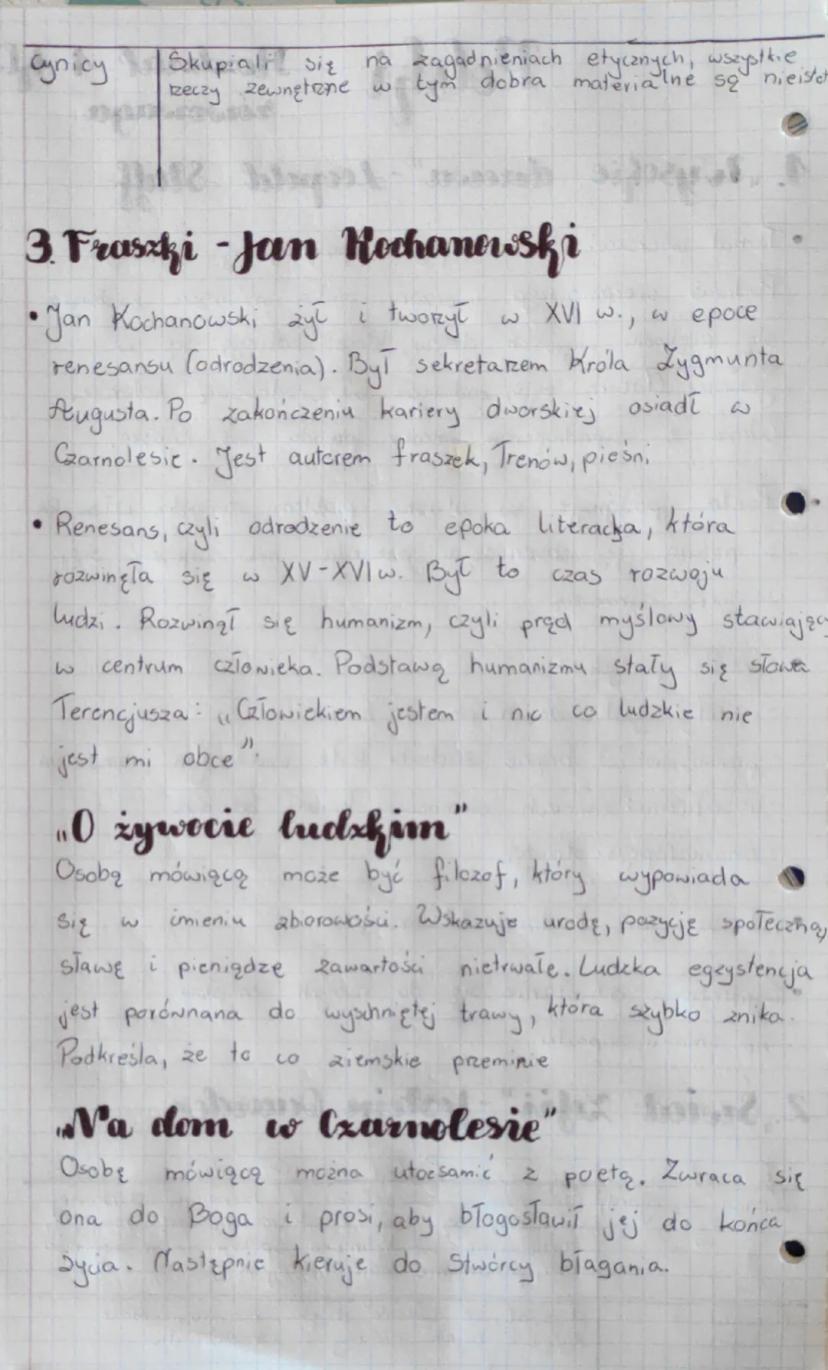 Cynicy Skupiali się na zagadnieniach etycznych, wszystkie
rzeczy zewnętrzne w tym dobra materialne są nieisto
3. Fraszki - Jan Kochanowski
• Jan Kochanowski żył i tworzył w XVI w., w epoce
renesansu (odrodzenia). Był sekretarzem Króla Zygmunta
Augusta. Po zakończeniu kariery dworskiej osiadł w
Czarnolesie. Jest autorem fraszek, Trenów, pieśni
• Renesans, czyli odrodzenie to epoka literacka, która
rozwinęła się w XV-XVI w. Był to czas rozwoju
ludzi. Rozwinął się humanizm, czyli prąd myślowy stawiający
w centrum człowieka. Podstawą humanizmu stały się słowa
Terencjusza: „Człowiekiem jestem i nic co ludzkie nie
jest mi obce".
„O żywocie ludzkim"
Osobą mówiącą może być filozof, który wypowiada
się w imieniu zborowości. Wskazuje urodę, pozycję społeczną,
sławę i pieniądze zawartości nietrwałe. Ludzka egzystencja
jest porównana do wyschniętej trawy, która szybko znika.
Podkreśla, że to co ziemskie przeminie
„Na dom w Czarnolesie"
Osobę mówiącą można utożsamić z poetą. Zwraca się
ona do Boga i prosi, aby błogosławił jej do końca
życia. Następnie kieruje do Stwórcy błagania.